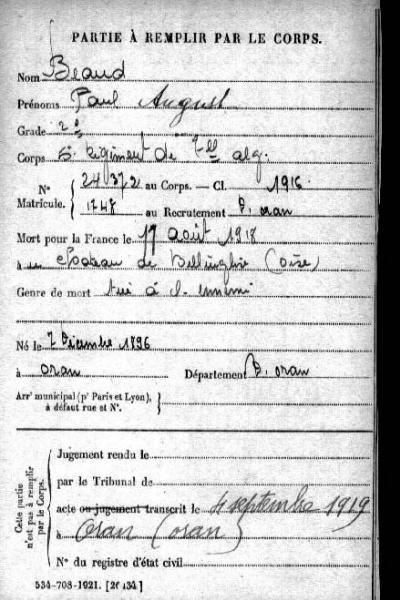 PARTIE À REMPLIR PAR LE CORPS.
Nom Beaud
Prénoms Paul August
Grade 2e
Corps 6e Régiment de Tlls alg.
No Matricule. { 24372 au Corps. — Cl. 1916
1748 au Recrutement D. oran
Mort pour la France le 17 août 1918
à de (Oise)
Genre de mort tué à l'ennemi
Né le 7 Décembre 1896
à oran Département D. oran
Arrt municipal (pr Paris et Lyon), à défaut rue et No. }
Cette partie n'est pas à remplir par le Corps. {
Jugement rendu le
par le Tribunal de
acte ou jugement transcrit le 4 septembre 1919
à Oran (oran)
No du registre d'état civil
534-708-1921. [26434]